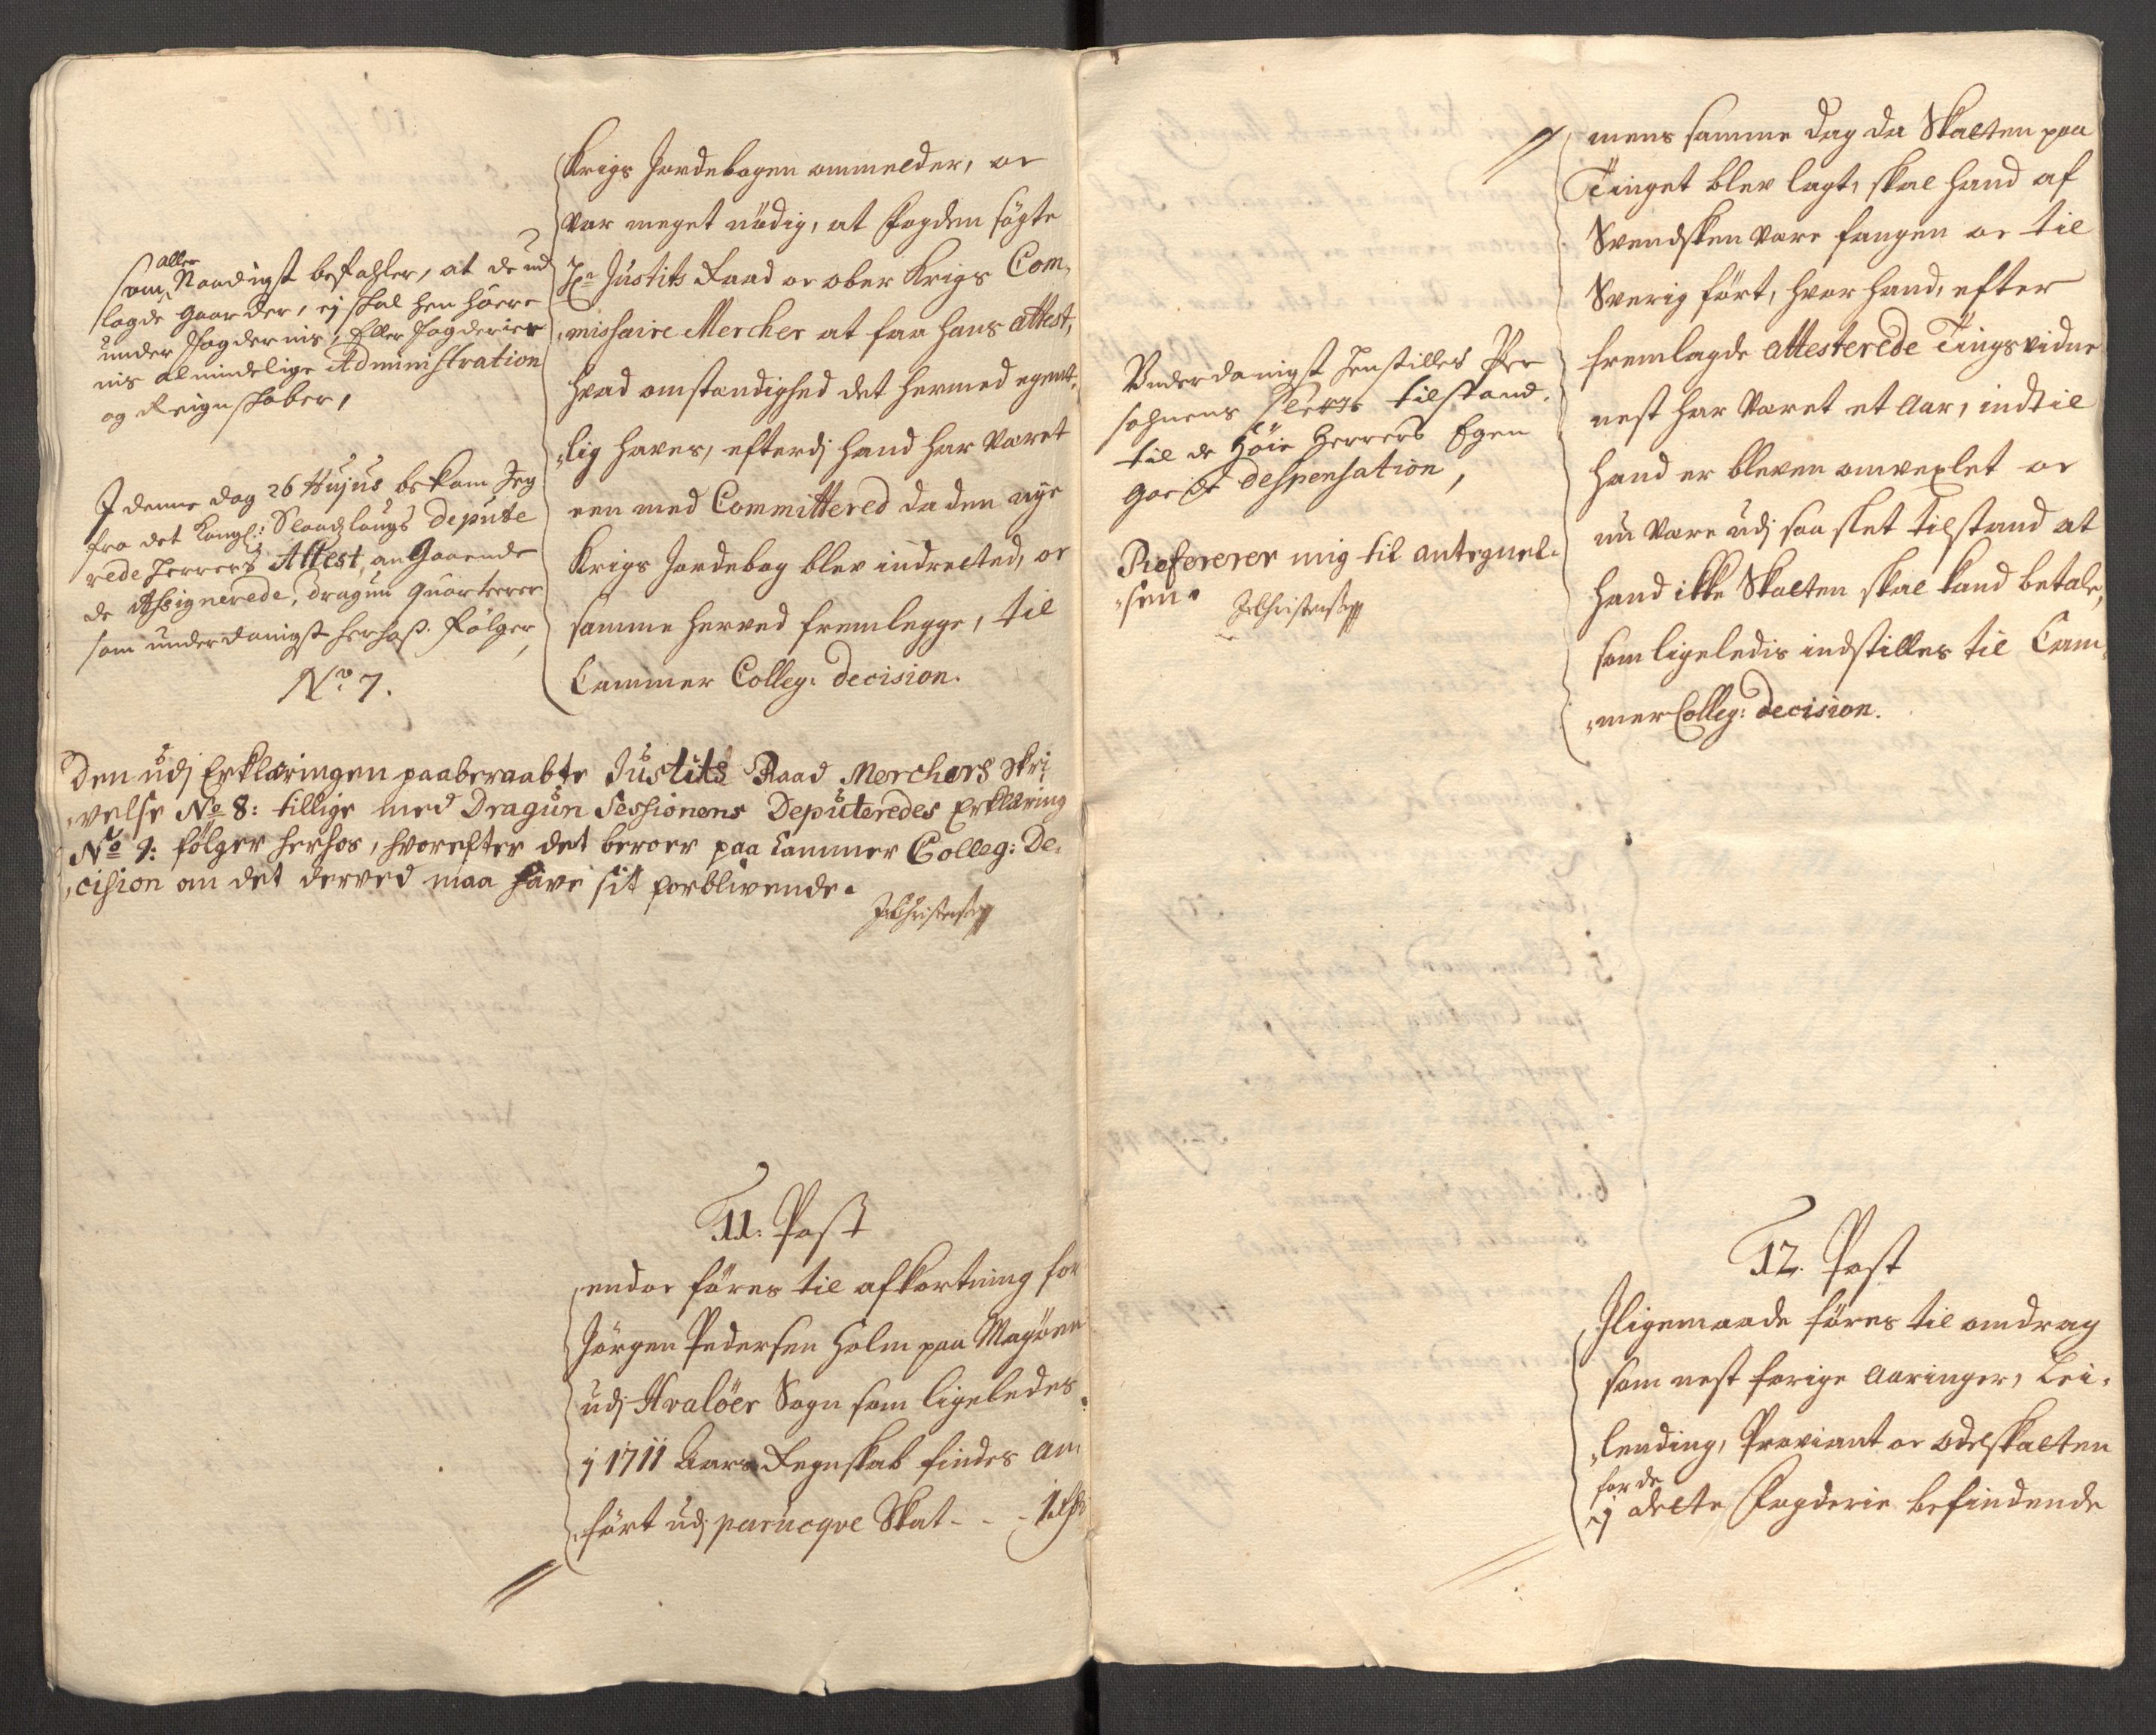 som aller Naadigst befahler, at de ud
lagde gaarder, ej skal hen höere
under fogdernis, Eller fogderier
nis almindelige Administration
og Reigenskaber,
I denne dag 26 Hujus bekom Jeg
fra det Kongl: Slaadslougs depute
rede Herrers Attest, angaaende
de Assignerede, dragun quarterer
som underdanigst herhoß følger,
No 7.
Krigs Jordebogen ommelder, or
var meget nødig, at fogden søgte
Hr Justits Raad or ober Krigs Com,
,missaire Mercker at faa hans attest,
hvad omstendighed det hermed egent,
,lig haves, efterdj hand har været
een med Committered da den nye
Krigs Jordebog blev indretted, or
samme herved fremlegge, til
Cammer Colleg: decision.
Den udj Erklæringen paaberaabte Justits Raad Merckers Skri
,velse No 8: tillige med Dragun Sessionens Deputeredes Erklæring
No 9: følger herhos, hvorefter det beroer paa Cammer Colleg: De,
,cision om det derved maa have sit forblivende.
JChristensen
11. Post
endor føres til afkortning for
Jørgen Pedersen Holm paa Magøen
udj Hvaløer Sogn som ligeledes
j 1711 Aars Regnskab findes an,
,ført udj parucqve Skat - - - 1 rdr
Underdanigst Jenstilles Per
sohnens slette tilstand,
til de Høie Herrers Egen
goede despensation,
Refererer mig til antegnel,
,sen.
JChristensen
mens samme dag da Skatten paa
Tinget blev lagt, skal hand af
Svendsken være fangen or til
Sverig ført, hvor hand, efter
fremlagde attesterede Tingsvidne
nest har været et Aar, indtil
hand er bleven omvexlet or
nu være udj saa slet tilstand at
hand ikke Skatten skal kand betale,
som ligeledis indstilles til Cam,
,mer Colleg: decision.
12. Post
Iligemaade føres til omdrag
som nest forige Aaringer, Lei,
,lending, Proviant or odelskatten
for de
j dette fogderie befindende